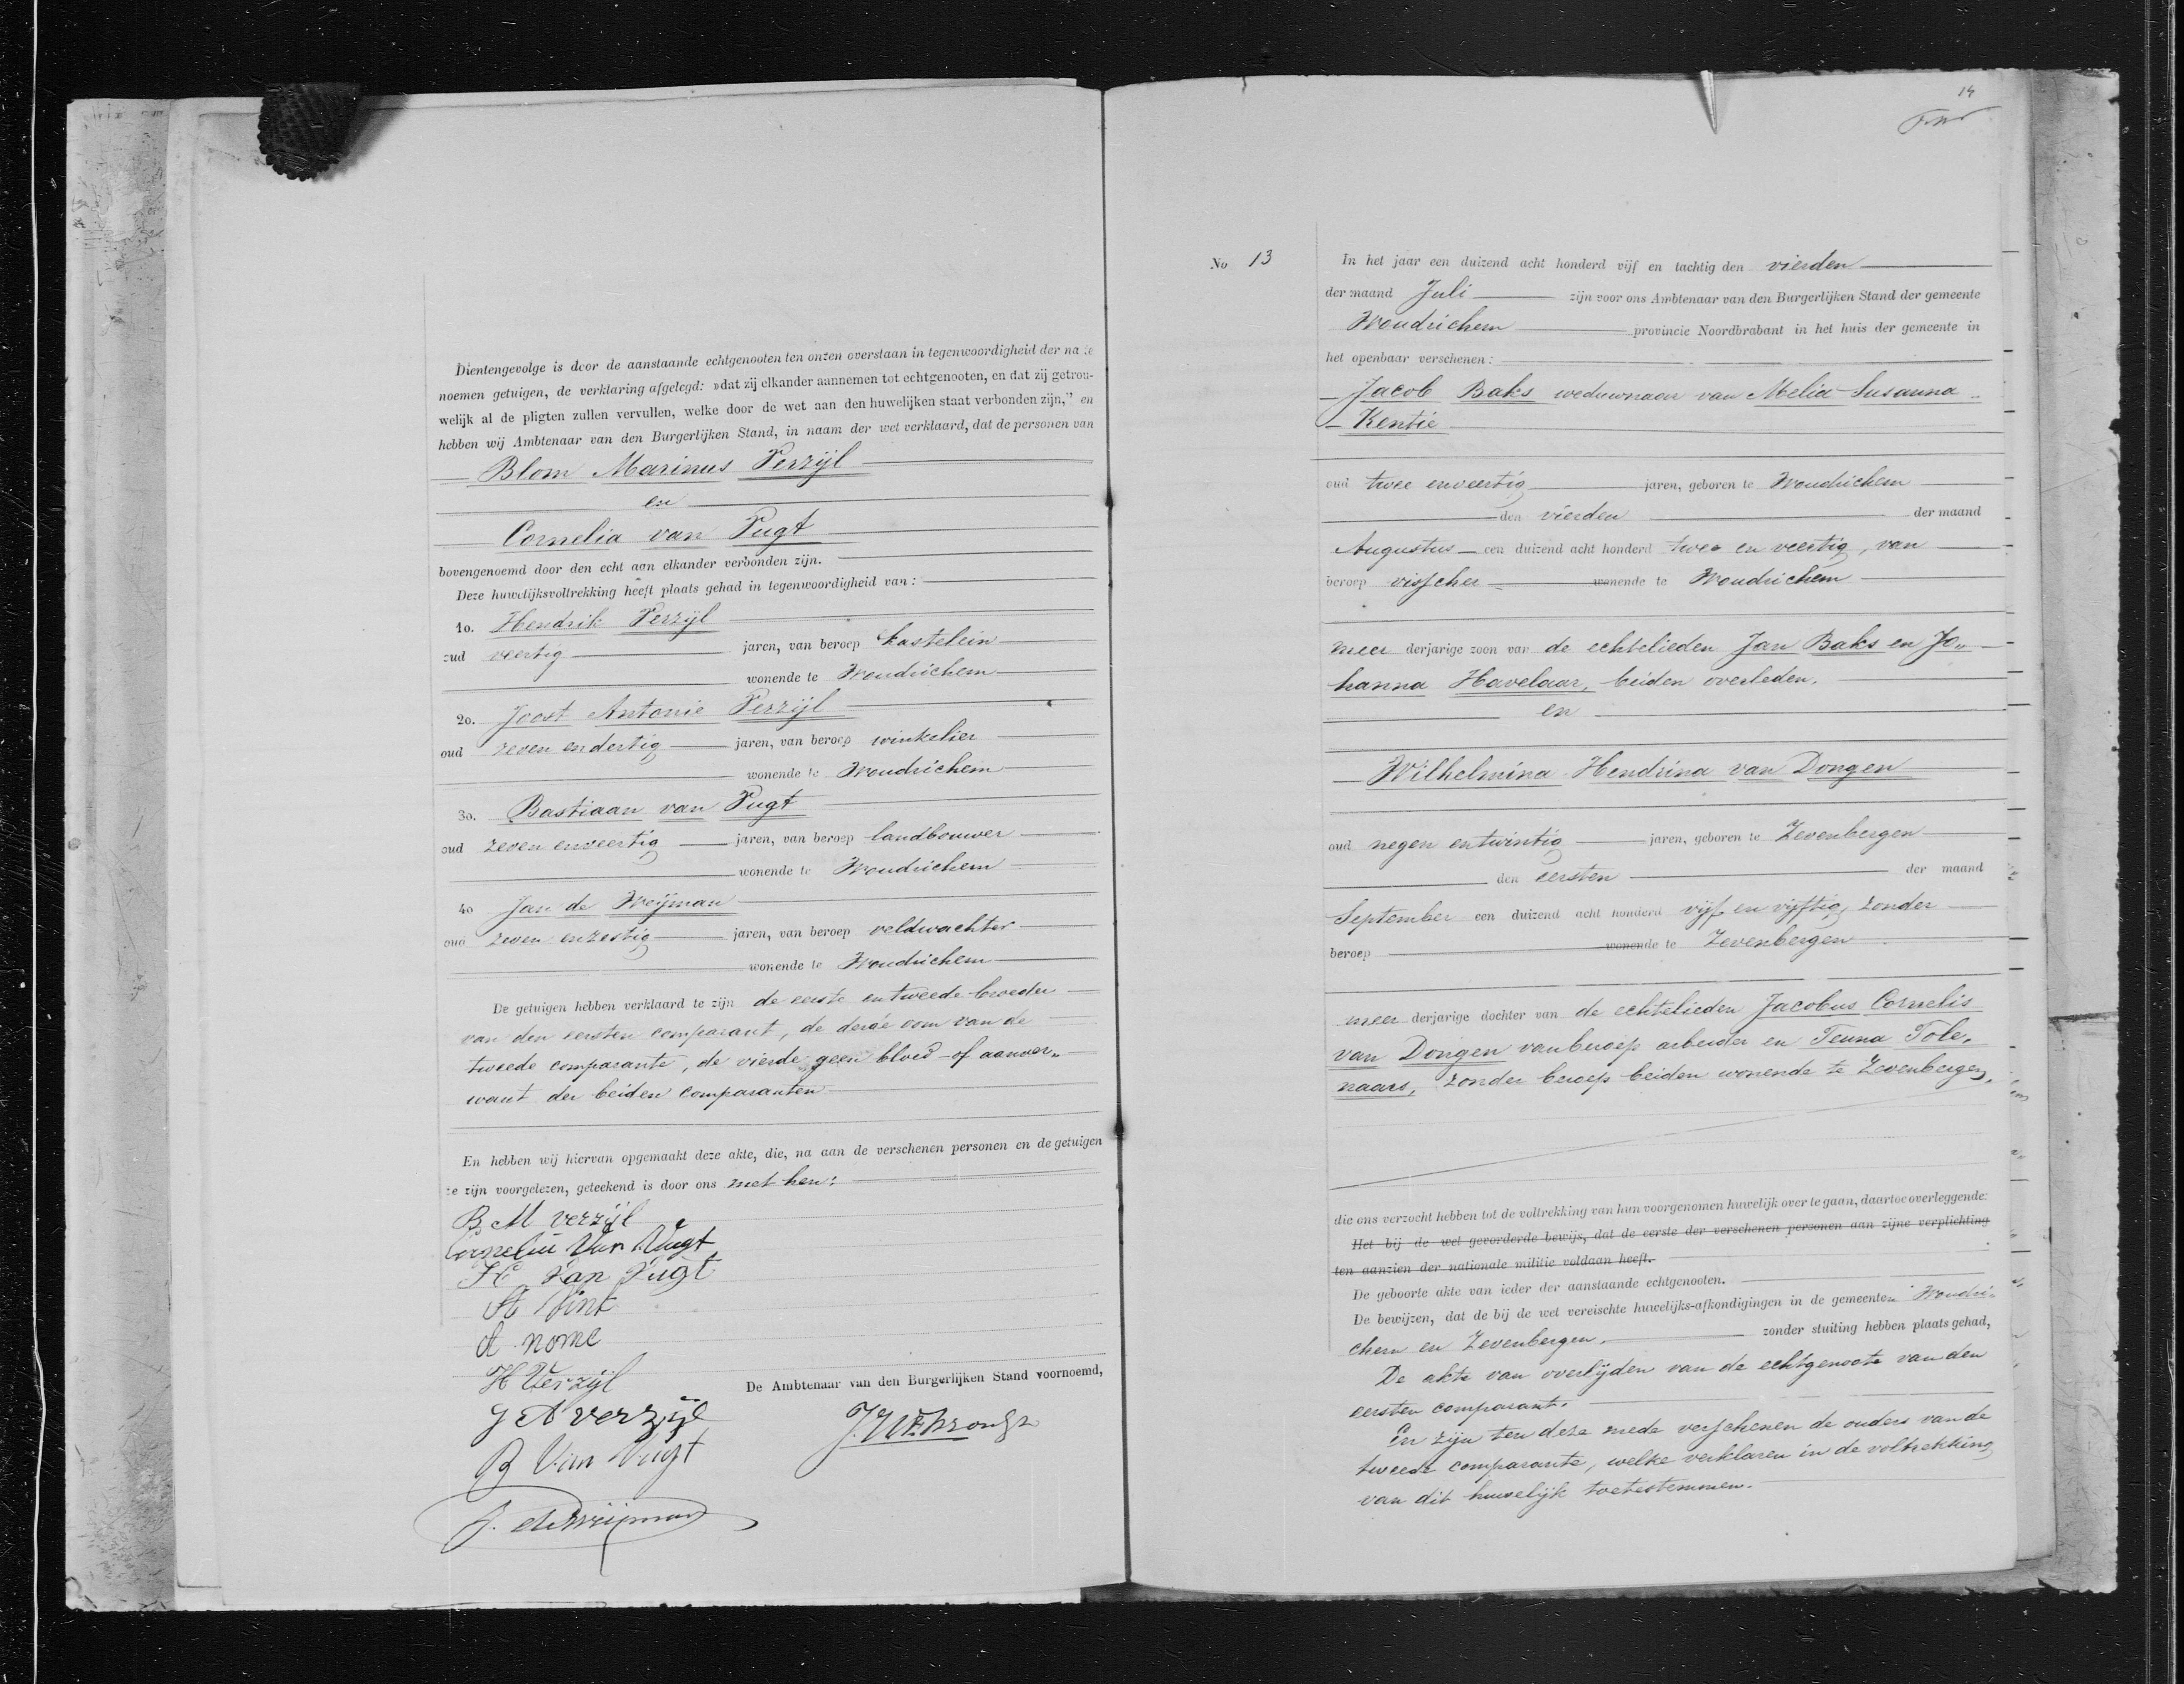 Dientengevolge is door de aanstaande echtgenooten ten onzen overstaan in tegenwoordigheid der na te
noemen getuigen, de verklaring afgelegd: »dat zij elkander aannemen tot echtgenooten, en dat zij getrou-
welijk al de pligten zullen vervullen, welke door de wet aan den huwelijken staat verbonden zijn," en
hebben wij Ambtenaar van den Burgerlijken Stand, in naam der wet verklaard, dat de personen van
Blom Marinus Verzijl
en
Cornelia van Vugt
bovengenoemd door den echt aan elkander verbonden zijn.
Deze huwelijksvoltrekking heeft plaats gehad in tegenwoordigheid van:
1o. Hendrik Verzijl
oud veertig jaren, van beroep kastelein
wonende te Woudrichem
2o. Joost Antonie Verzijl
oud zeven endertig jaren, van beroep winkelier
wonende te Woudrichem
3o. Bastiaan van Vugt
oud zeven enveertig jaren, van beroep landbouwer
wonende te Woudrichem
4o Jan de Weijman
oud zeven enzestig jaren, van beroep veldwachter
wonende te Woudrichem
De getuigen hebben verklaard te zijn de eerste entweede broeder
van den eersten comparant, de derde oom van de
tweede comparante, de vierde geen bloed- of aanver„
want der beiden comparanten
En hebben wij hiervan opgemaakt deze akte, die, na aan de verschenen personen en de getuigen
te zijn voorgelezen, geteekend is door ons met hen:
B M verzijl
Cornelia Van Vugt
H van Vugt
A Vink
A nome
H Verzijl
De Ambtenaar van den Burgerlijken Stand voornoemd,
J A verzijl
B Van Vugt
J. de Weijman
14
No 13
In het jaar een duizend acht honderd vijf en tachtig den vierden
der maand Juli zijn voor ons Ambtenaar van den Burgerlijken Stand der gemeente
Woudrichem provincie Noordbrabant in het huis der gemeente in
het openbaar verschenen:
Jacob Baks weduwnaar van Melia Susanna
Kentie
oud twee enveertig jaren, geboren te Woudrichem
den vierden der maand
Augustus een duizend acht honderd twee en veertig, van
beroep visscher wonende te Woudrichem
meer derjarige zoon van de echtelieden Jan Baks en Jo„
hanna Havelaar, beiden overleden.
en
Wilhelmina Hendrina van Dongen
oud negen entwintig jaren, geboren te Zevenbergen
den eersten der maand
September een duizend acht honderd vijf en vijftig, zonder
beroep wonende te Zevenbergen
meer derjarige dochter van de echtelieden Jacobus Cornelis
van Dongen vanberoep arbeider en Teuna Tole„
naars, zonder beroep beiden wonende te Zevenbergen.
die ons verzocht hebben tot de voltrekking van hun voorgenomen huwelijk over te gaan, daartoe overleggende:
Het bij de wet gevorderde bewijs, dat de eerste der verschenen personen aan zijne verplichting
ten aanzien der nationale militie voldaan heeft.
De geboorte akte van ieder der aanstaande echtgenooten.
De bewijzen, dat de bij de wet vereischte huwelijks-afkondigingen in de gemeenten Woudri„
chem en Zevenbergen. zonder stuiting hebben plaats gehad,
De akte van overlijden van de echtgenoote van den
eersten comparant.
En zijn ten deze mede verschenen de ouders van de
tweede comparante, welke verklaren in de voltrekking
van dit huwelijk toetestemmen.